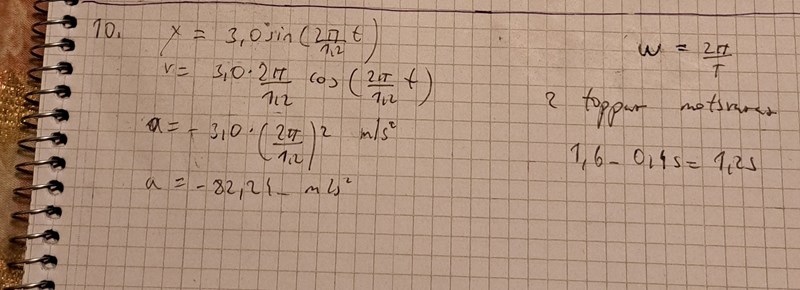 10. x = 3,0 sin(2π/1,2 t)
v = 3,0 · 2π/1,2 cos(2π/1,2 t)
a = - 3,0 · (2π/1,2)² m/s²
a = - 82,2 m/s²
ω = 2π/T
2 toppar motsvarar
1,6 - 0,4s = 1,2s